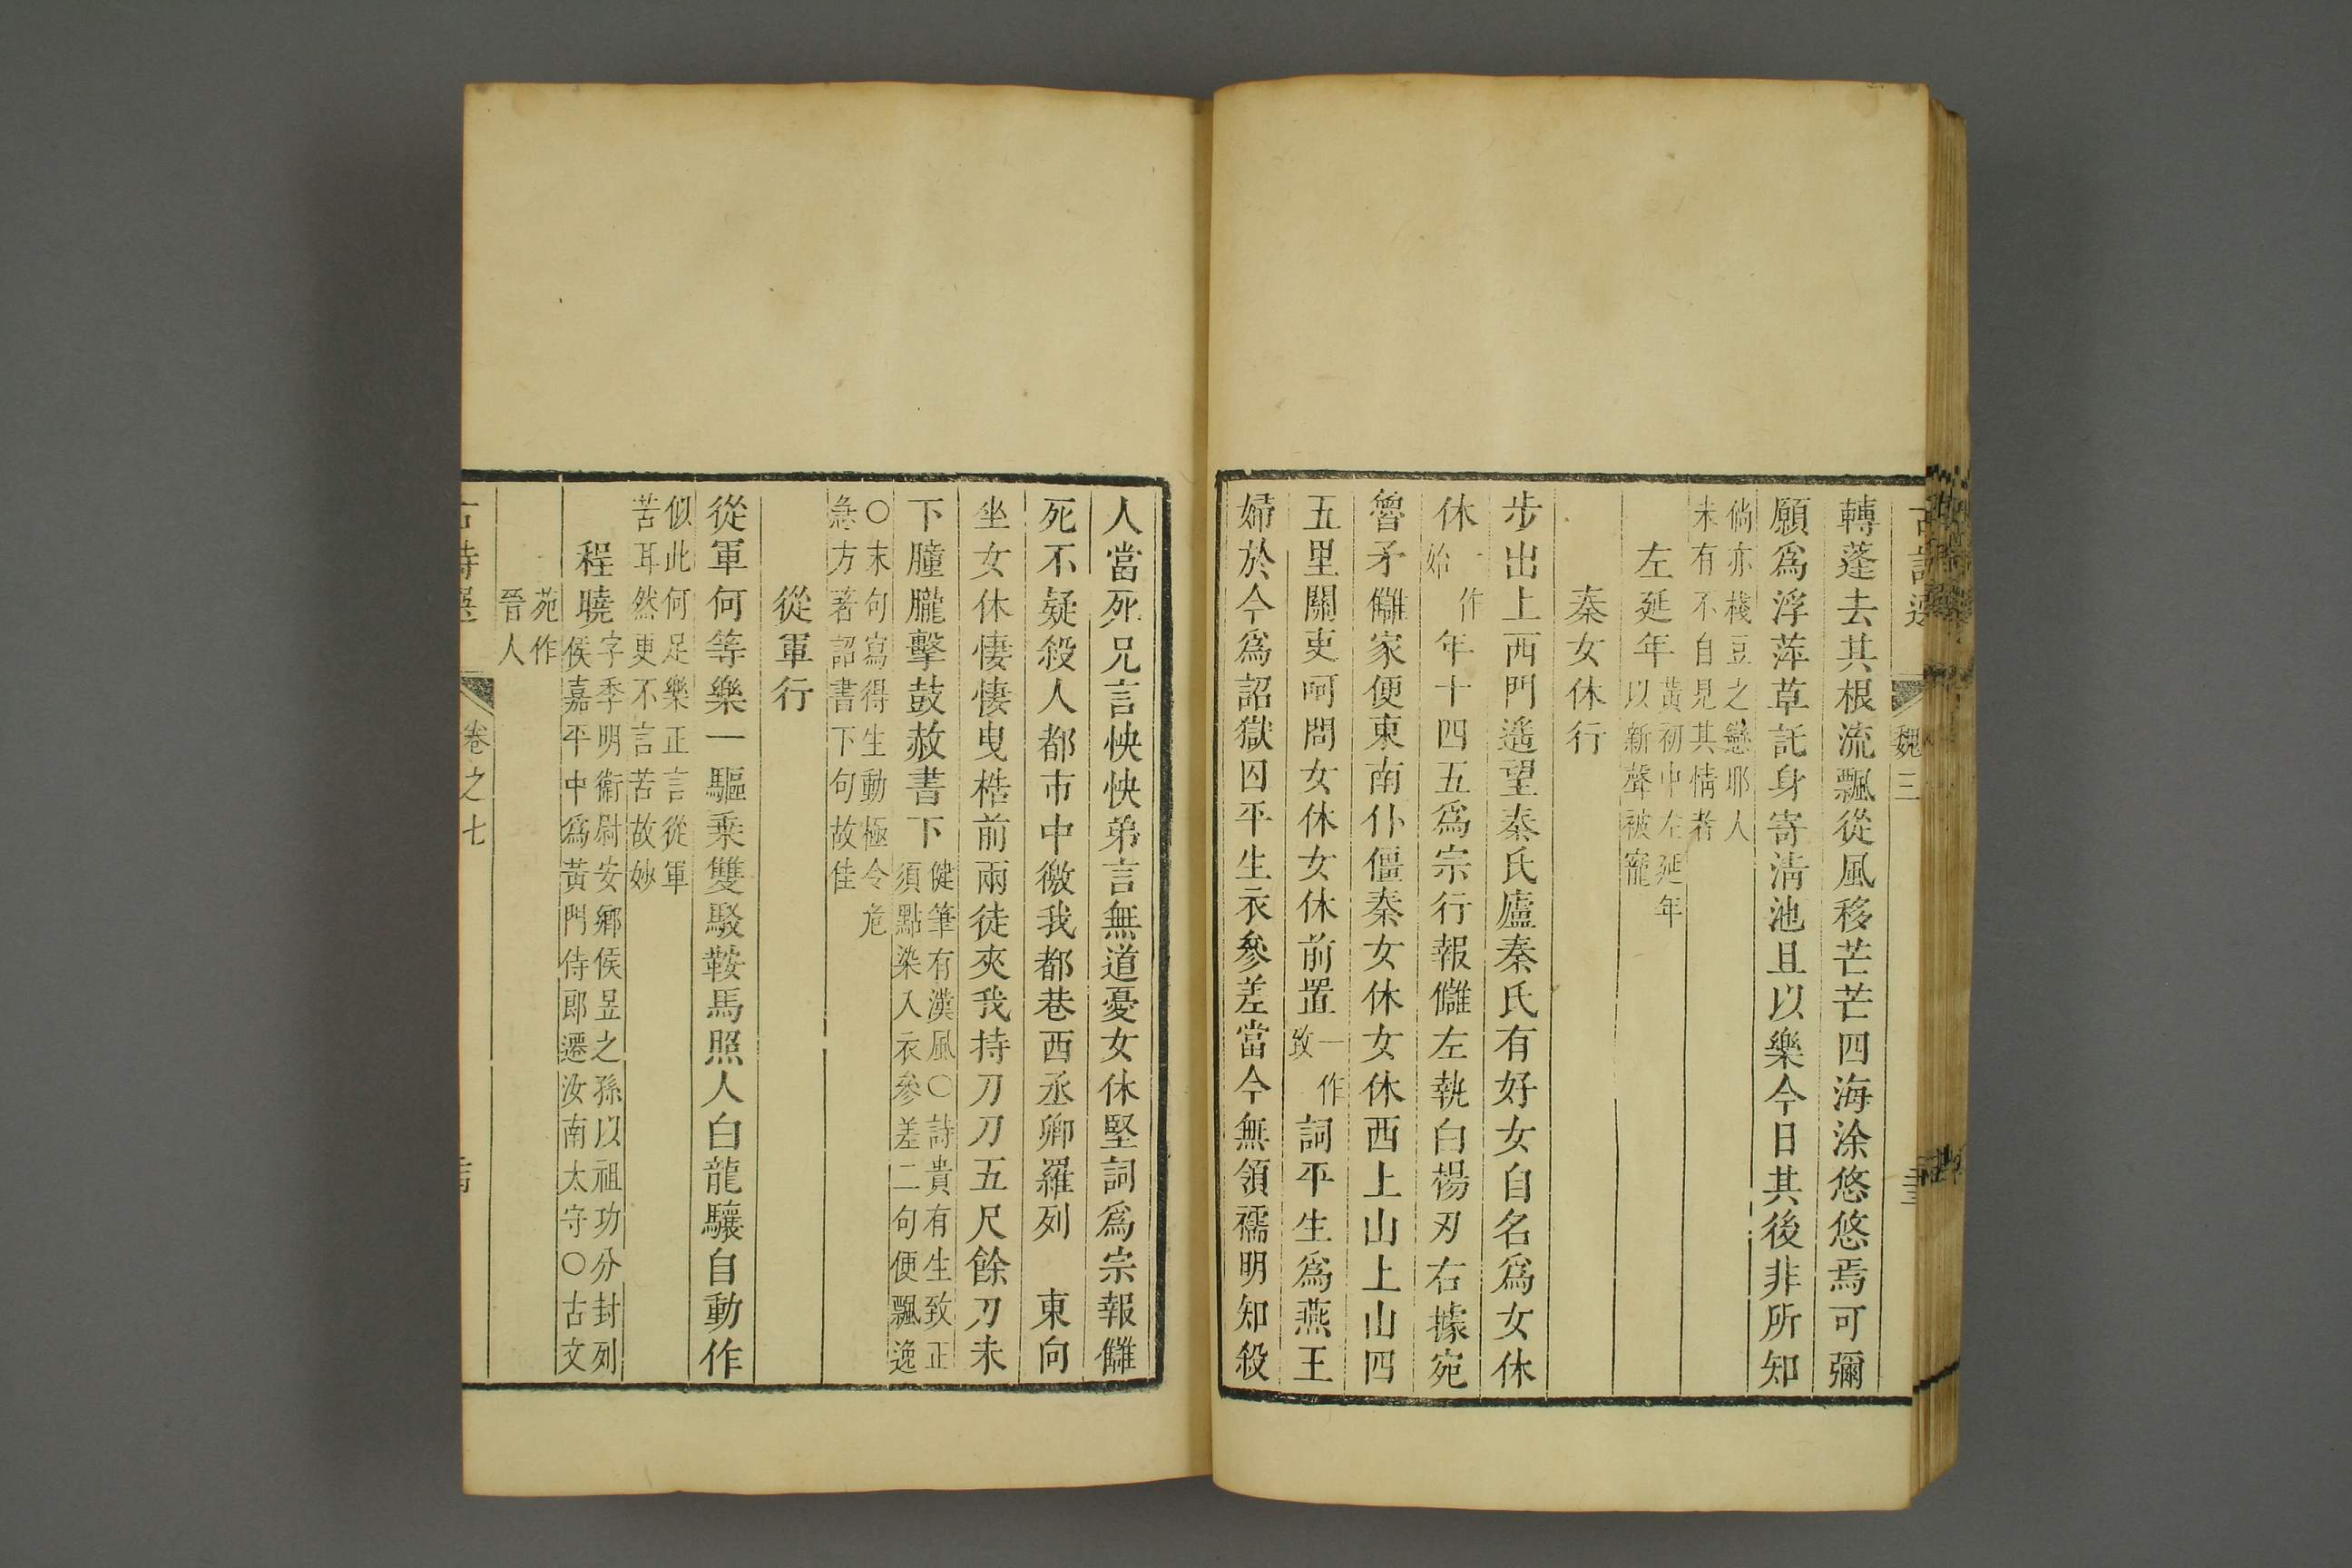 魏三
轉蓬去其根流飄從風移芒芒四海涂悠悠焉可彌
願爲浮萍草託身寄清池且以樂今日其後非所知
倘亦棧豆之戀耶人
未有不自見其情者
左延年
黃初中左延年
以新聲被寵
秦女休行
步出上西門遙望秦氏廬秦氏有好女自名爲女休
休一作始年十四五爲宗行報讎左執白楊刃右據宛
魯矛讎家便東南仆僵秦女休女休西上山上山四
五里關吏呵問女休女休前置一作致詞平生爲燕王
婦於今爲詔獄囚平生衣參差當今無領襦明知殺
人當死兄言怏怏弟言無道憂女休堅詞爲宗報讎
死不疑殺人都市中徼我都巷西丞卿羅列　東向
坐女休悽悽曳梏前兩徒夾我持刀刀五尺餘刀未
下朣朧擊鼓赦書下
健筆有漢風○詩貴有生致正
須點染入衣參差二句便飄逸
○末句寫得生動極令危
急方著詔書下句故佳
從軍行
從軍何等樂一驅乘雙駁鞍馬照人白龍驤自動作
似此何足樂正言從軍
苦耳然更不言苦故妙
程曉
字季明衛尉安鄉侯昱之孫以祖功分封列
侯嘉平中爲黃門侍郎遷汝南太守○古文
苑作
晉人
卷之七